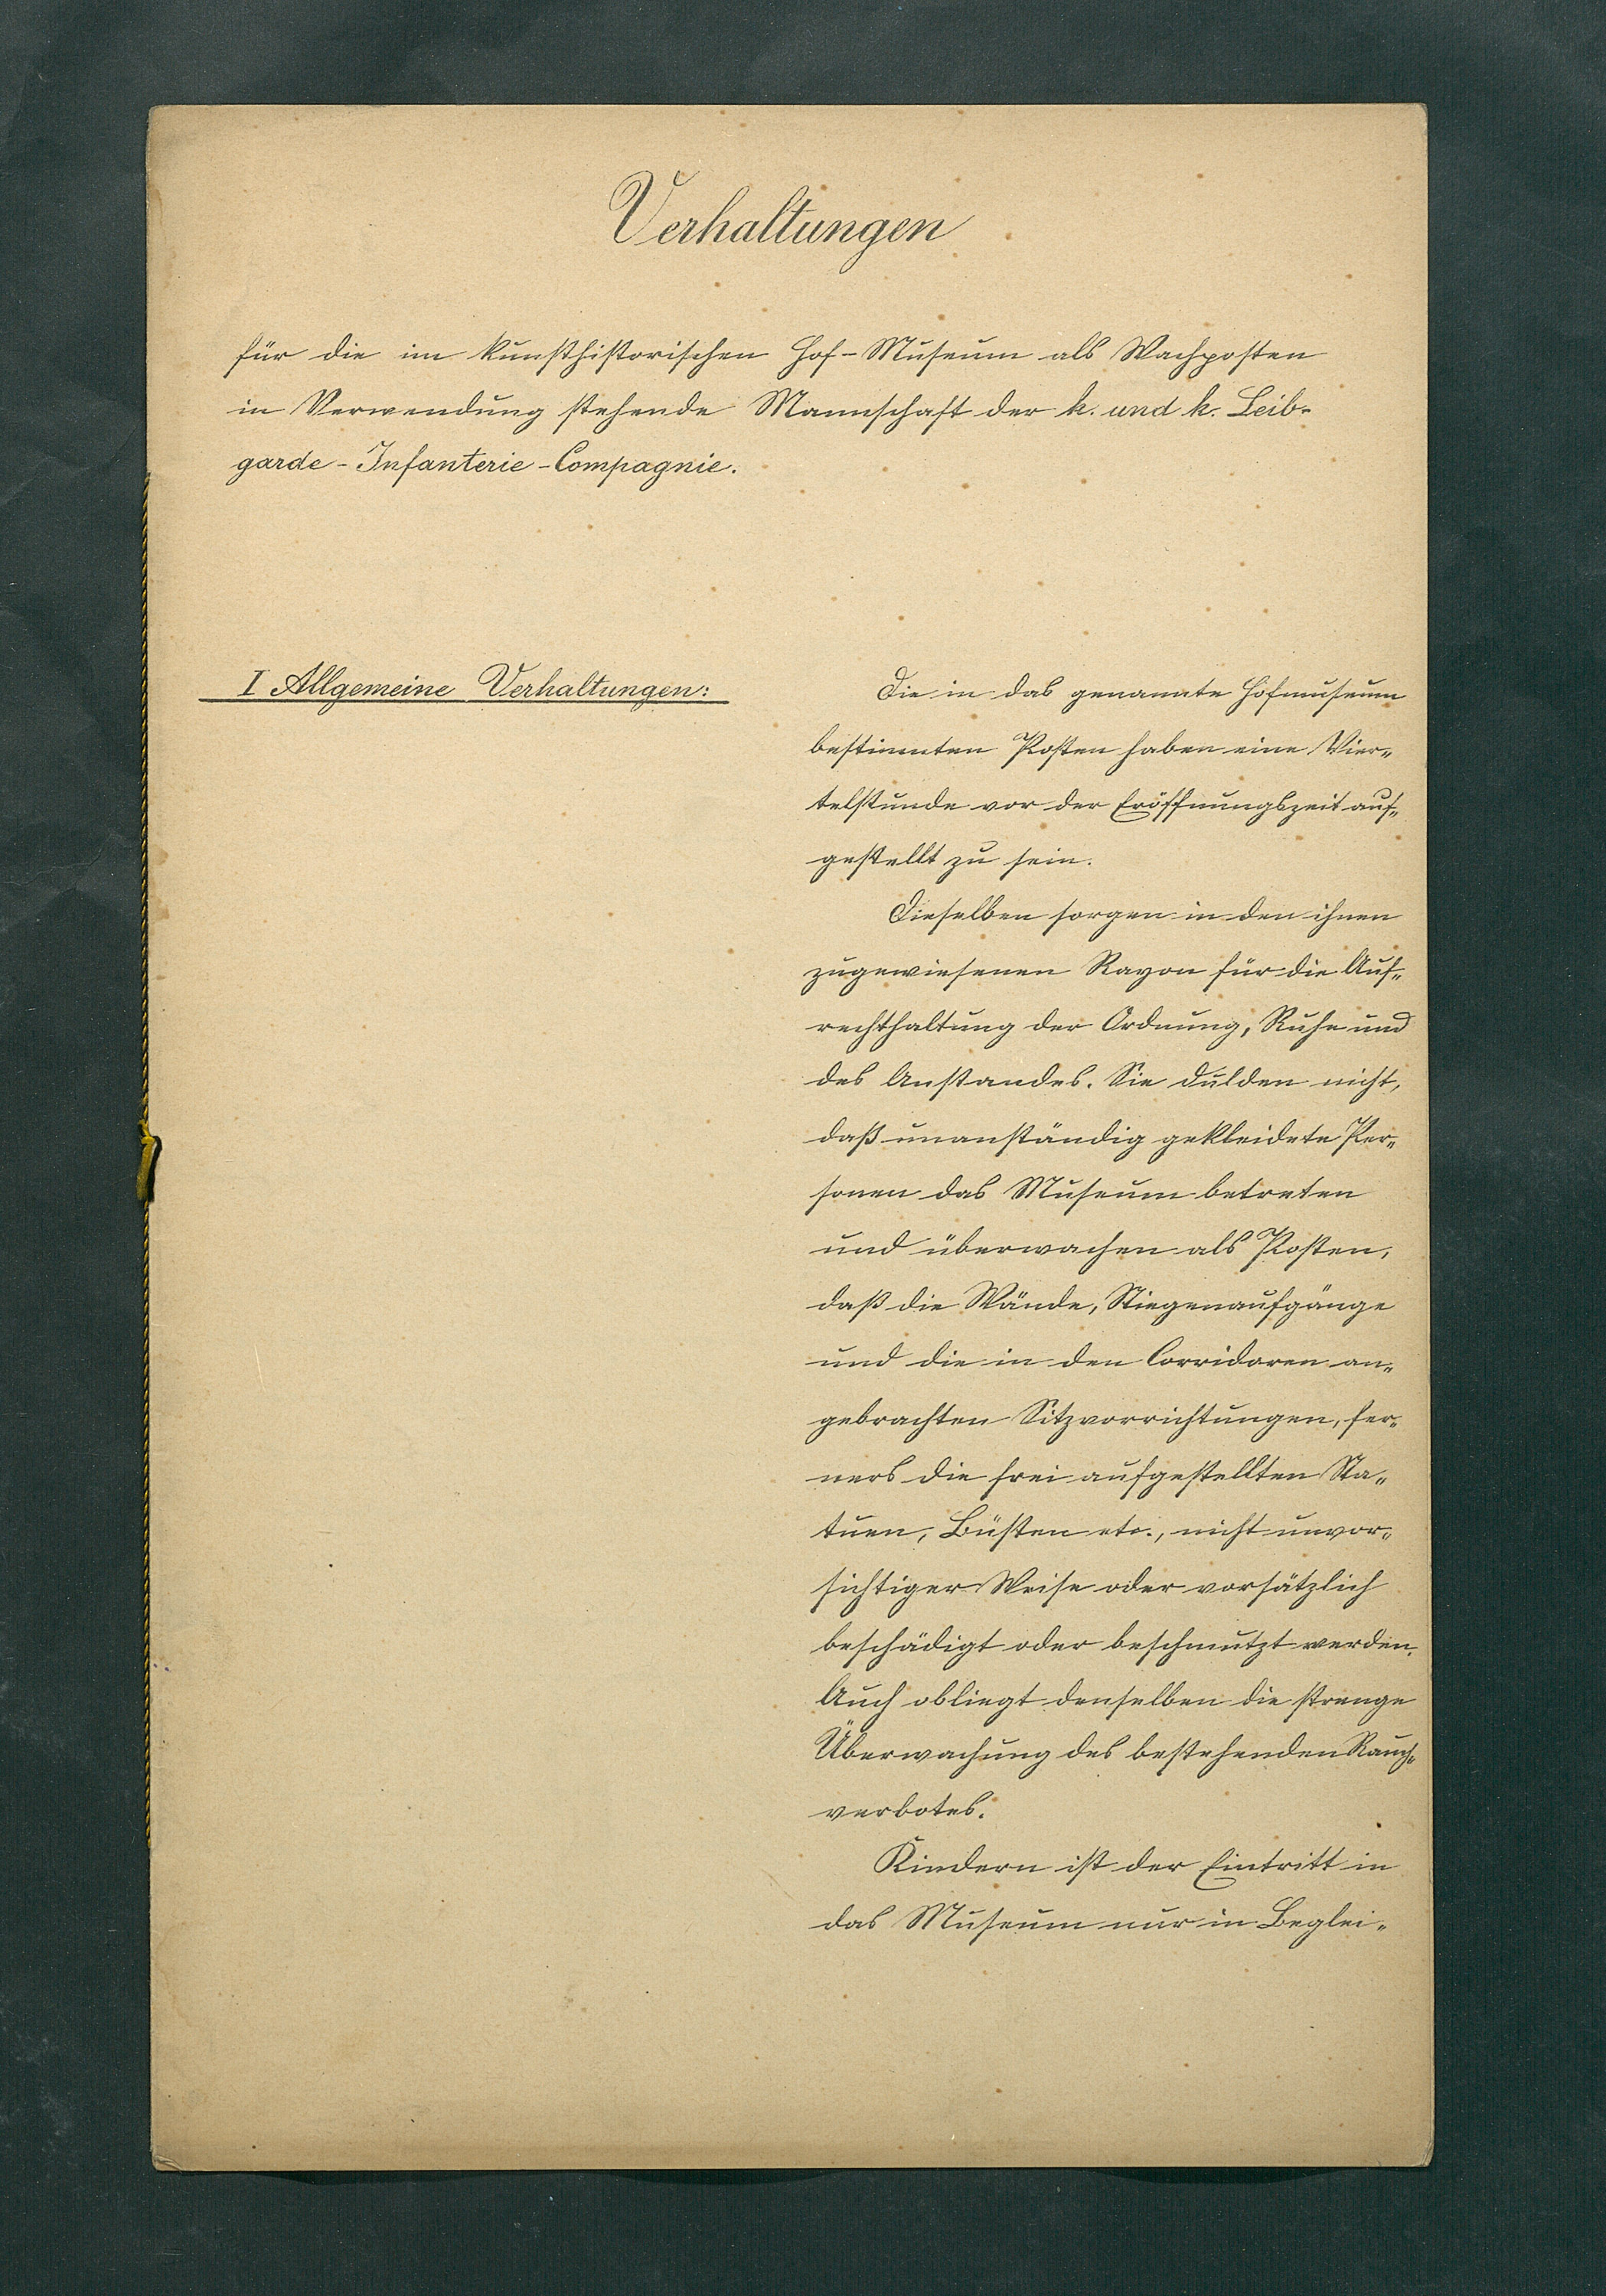 Verhaltungen
für die im kunsthistorischen Hof-Museum als Wachposten
in Verwendung stehende Mannschaft der k. und k. Leib-
garde-Infanterie-Compagnie.
I Allgemeine Verhaltungen:
Die in das genannte Hofmuseum
bestimmten Posten haben eine Vier-
telstunde vor der Eröffnungszeit auf-
gestellt zu sein.
Dieselben sorgen in den ihnen
zugewiesenen Rayon für die Auf-
rechthaltung der Ordnung, Ruhe und
des Anstandes. Sie dulden nicht,
daß unanständig gekleidete Per-
sonen das Museum betreten
und überwachen als Posten,
daß die Wände, Stiegenaufgänge
und die in den Corridoren an-
gebrachten Sitzvorrichtungen, fer-
ners die frei aufgestellten Sta-
tuen, Büsten etc., nicht unvor-
sichtiger Weise oder vorsätzlich
beschädigt oder beschmutzt werden.
Auch obliegt denselben die strenge
Überwachung des bestehenden Rauch-
verbotes.
Kindern ist der Eintritt in
das Museum nur in Beglei-